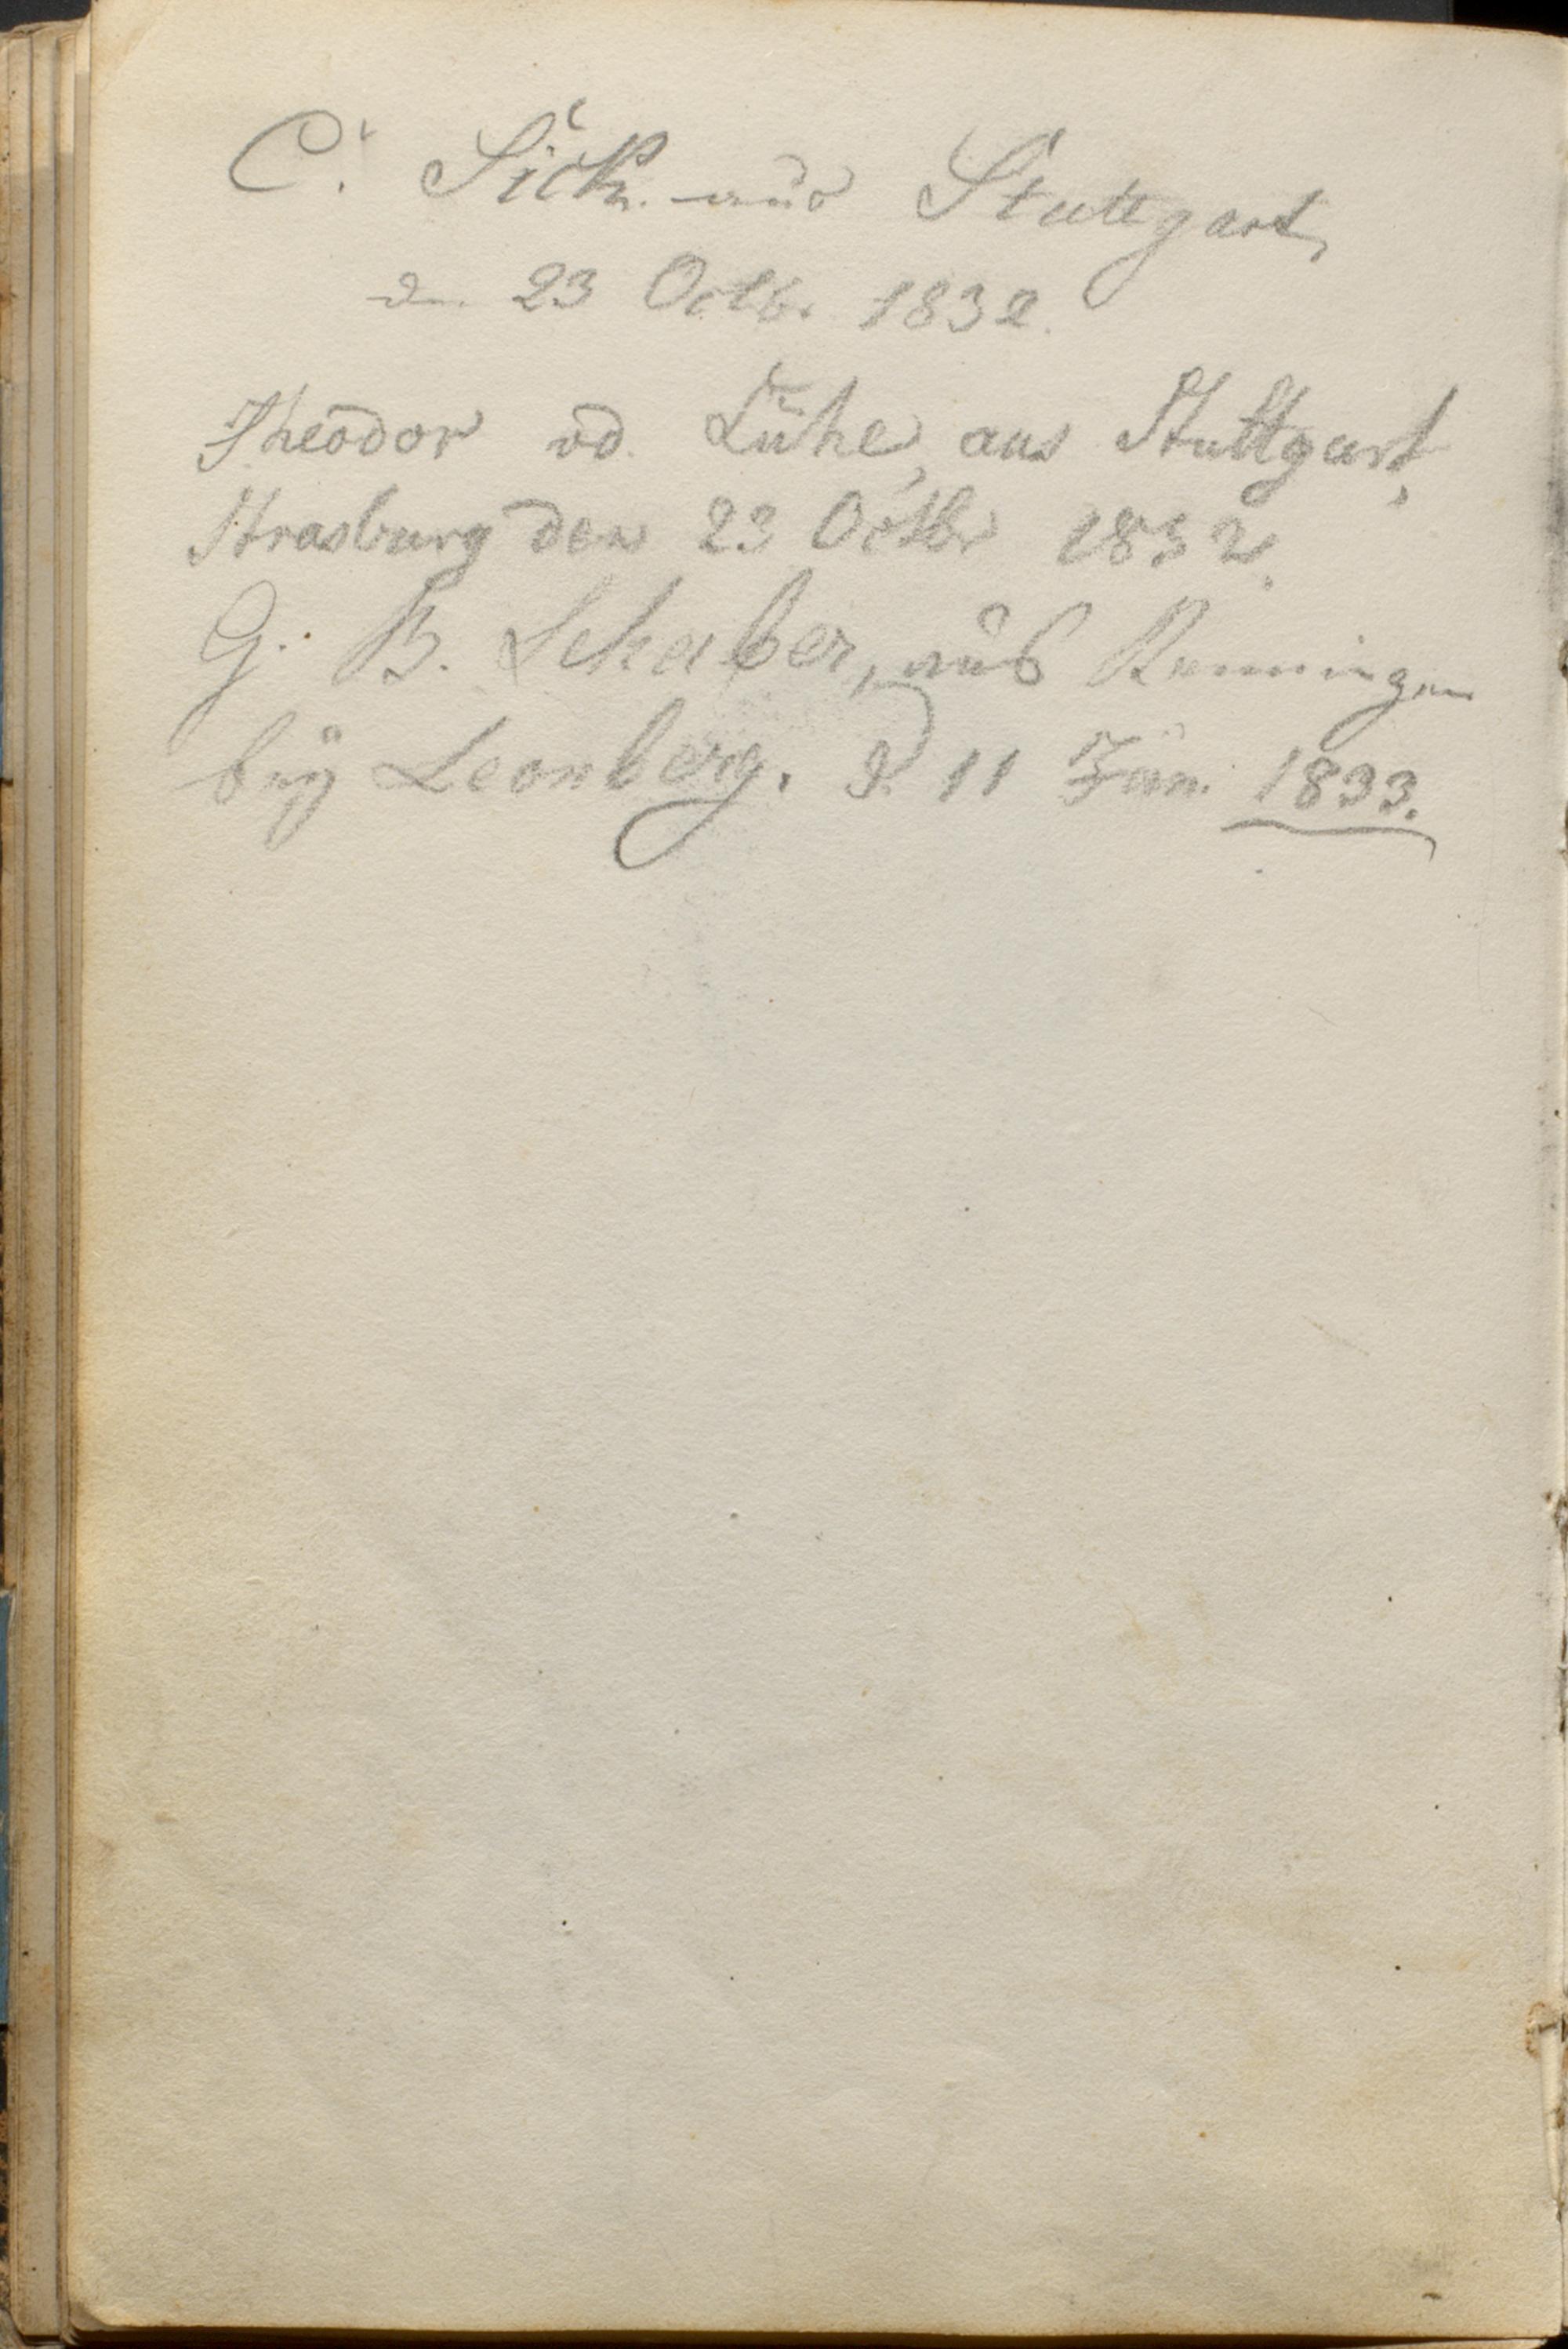 C. Sick. aus Stuttgart,
den 23 Octbr 1832.
Theodor vd. Lühe, aus Stuttgart,
Strasburg den 23 Octbr 1832.
G. B. Schaber, aus Renningen
bey Leonberg. d. 11 Jun. 1833.